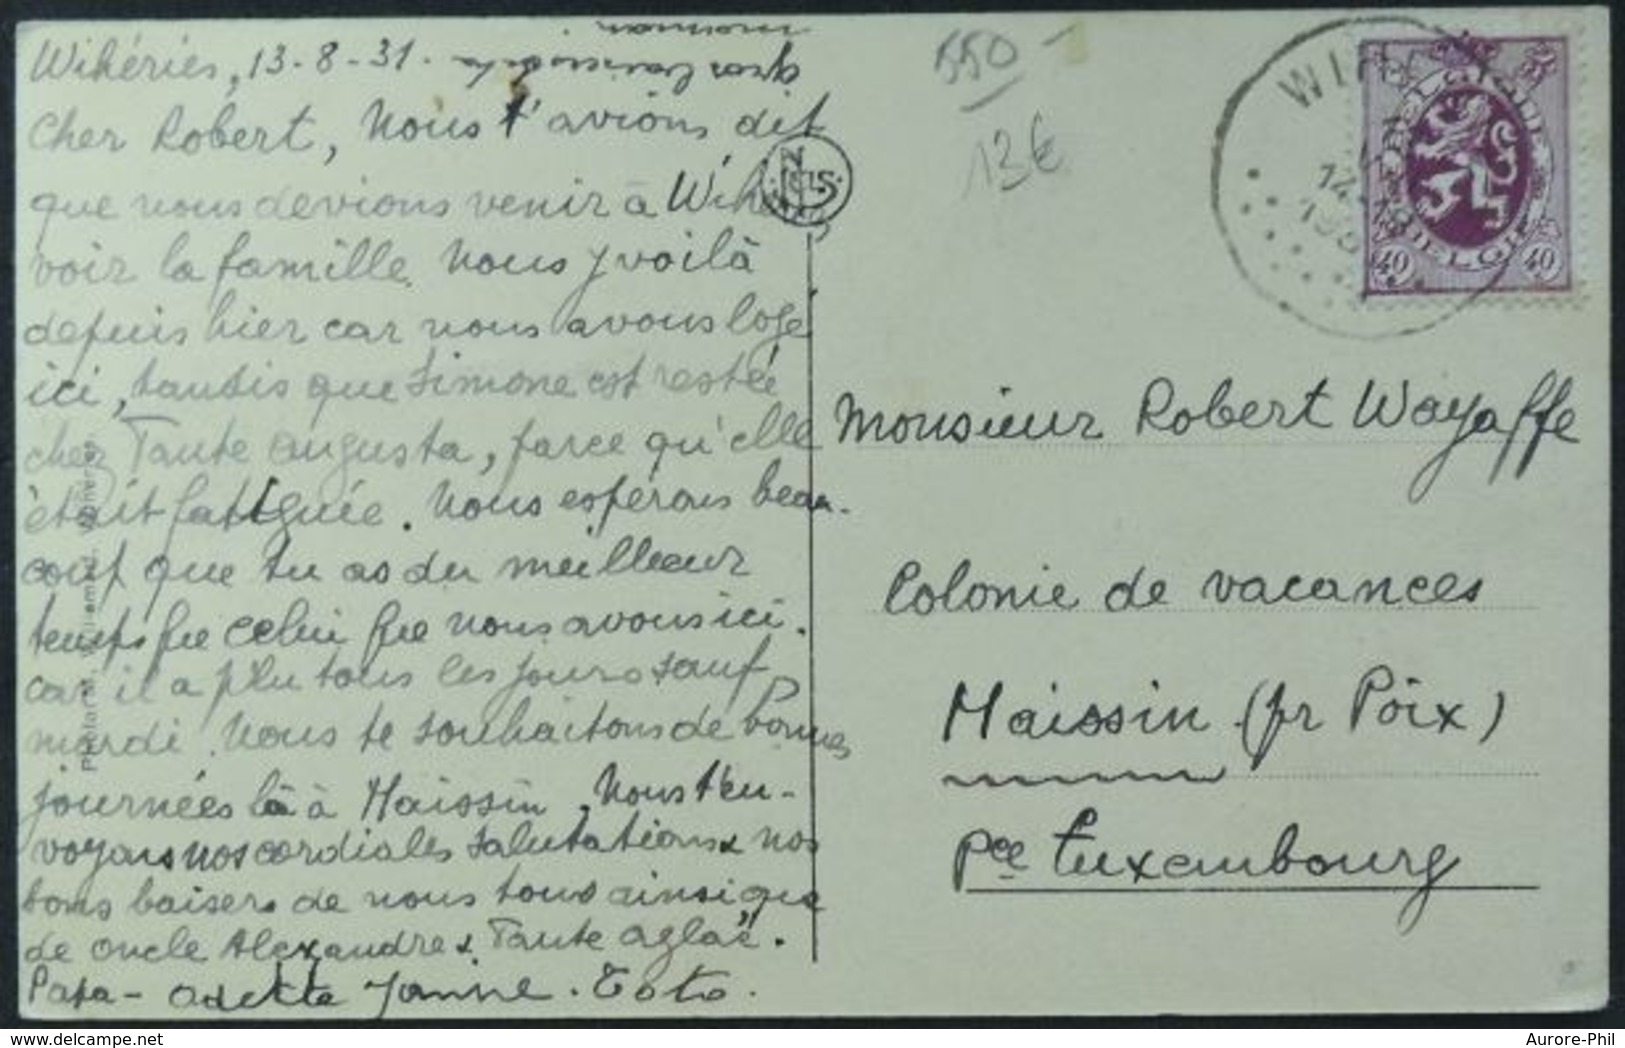 Wihéries, 13-8-31.
gros baisers de ta
maman
Cher Robert, Nous t'avions dit
que nous devions venir à Wihéries
voir la famille. Nous y voilà
depuis hier car nous avons logé
ici, tandis que Simone est restée
chez Tante Augusta, parce qu'elle
était fatiguée. Nous espérons beau-
coup que tu as du meilleur
temps que celui que nous avons ici.
car il a plu tous les jours sauf
mardi. Nous te souhaitons de bonnes
journées là à Maissin. Nous t'en-
voyons nos cordiales salutations & nos
bons baisers de nous tous ainsi que
de oncle Alexandre & Tante Aglaë.
Papa - Odette Jannine. Toto.
NELS
550
13€
WIH
14
193
BELGIQUE
BELGIË
40 40
Monsieur Robert Wayaffe
Colonie de vacances
Maissin (pr Poix)
Pce Luxembourg
Aurore-Phil